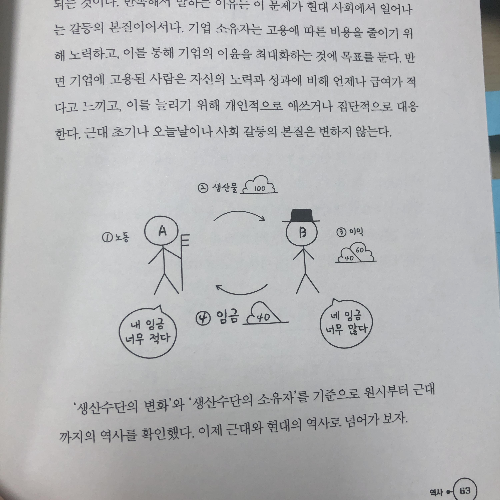 되는 것이다. 반복해서 말하는 이유는 이 문제가 현대 사회에서 일어나
는 갈등의 본질이어서다. 기업 소유자는 고용에 따른 비용을 줄이기 위
해 노력하고, 이를 통해 기업의 이윤을 최대화하는 것에 목표를 둔다. 반
면 기업에 고용된 사람은 자신의 노력과 성과에 비해 언제나 급여가 적
다고 느끼고, 이를 늘리기 위해 개인적으로 애쓰거나 집단적으로 대응
한다. 근대 초기나 오늘날이나 사회 갈등의 본질은 변하지 않는다.
② 생산물 100
① 노동
A
B
③ 이익
40 60
④ 임금 40
내 임금
너무 적다
네 임금
너무 많다
'생산수단의 변화'와 '생산수단의 소유자'를 기준으로 원시부터 근대
까지의 역사를 확인했다. 이제 근대와 현대의 역사로 넘어가 보자.
역사 63